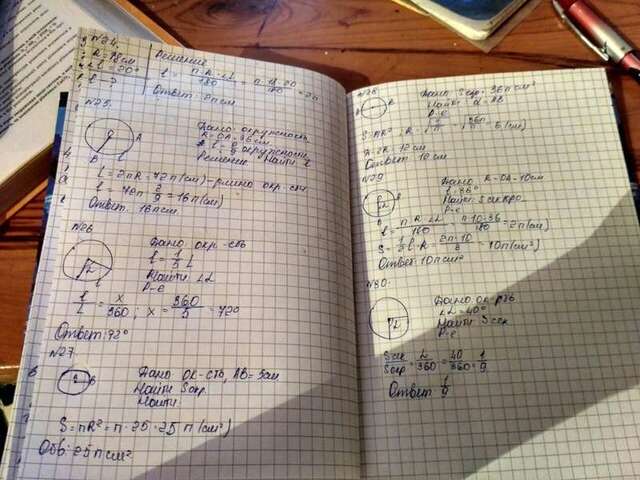 N24.
R = 18см
Решение
l = пR·∠α/180 = п·18·20/180 = 2п
Ответ 2п см.
N25.
A
B
Дано: окружность
R = OA = 36см
l = 2/9 окружность
Решение Найти l
l = 2пR = 72п (см) – длина окр-сти
l = 72п · 2/9 = 16п (см)
Ответ: 16п см.
N26
Дано: окр-сть
l = 1/5 L
Найти ∠α
Р-е
l/L = x/360; x = 360/5 = 72°
Ответ: 72°
N27
Дано ок-сть, AB = 5см
Найти Sокр.
Найти
S = пR² = п · 25 = 25п (см²)
Отв: 25п см²
N28
Дано: Sокр. = 36п см²
Найти d - AB
Р-е
S = пR²; R = √S/п = √36п/п = 6 (см)
d = 2R = 12 см
Ответ: 12 см
N29
Дано R - OA - 10см
∠ = 36°
Найти Sсектро
Р-е
l = пR·∠α/180 = п·10·36/180 = 2п (см)
S = 1/2 l·R = 2п·10/2 = 10п (см²)
Ответ: 10п см²
N30.
Дано: ок-сть
∠α = 40°
Найти Sсек
Р-е
Sсек/Sокр = ∠/360 = 40/360 = 1/9
Ответ 1/9